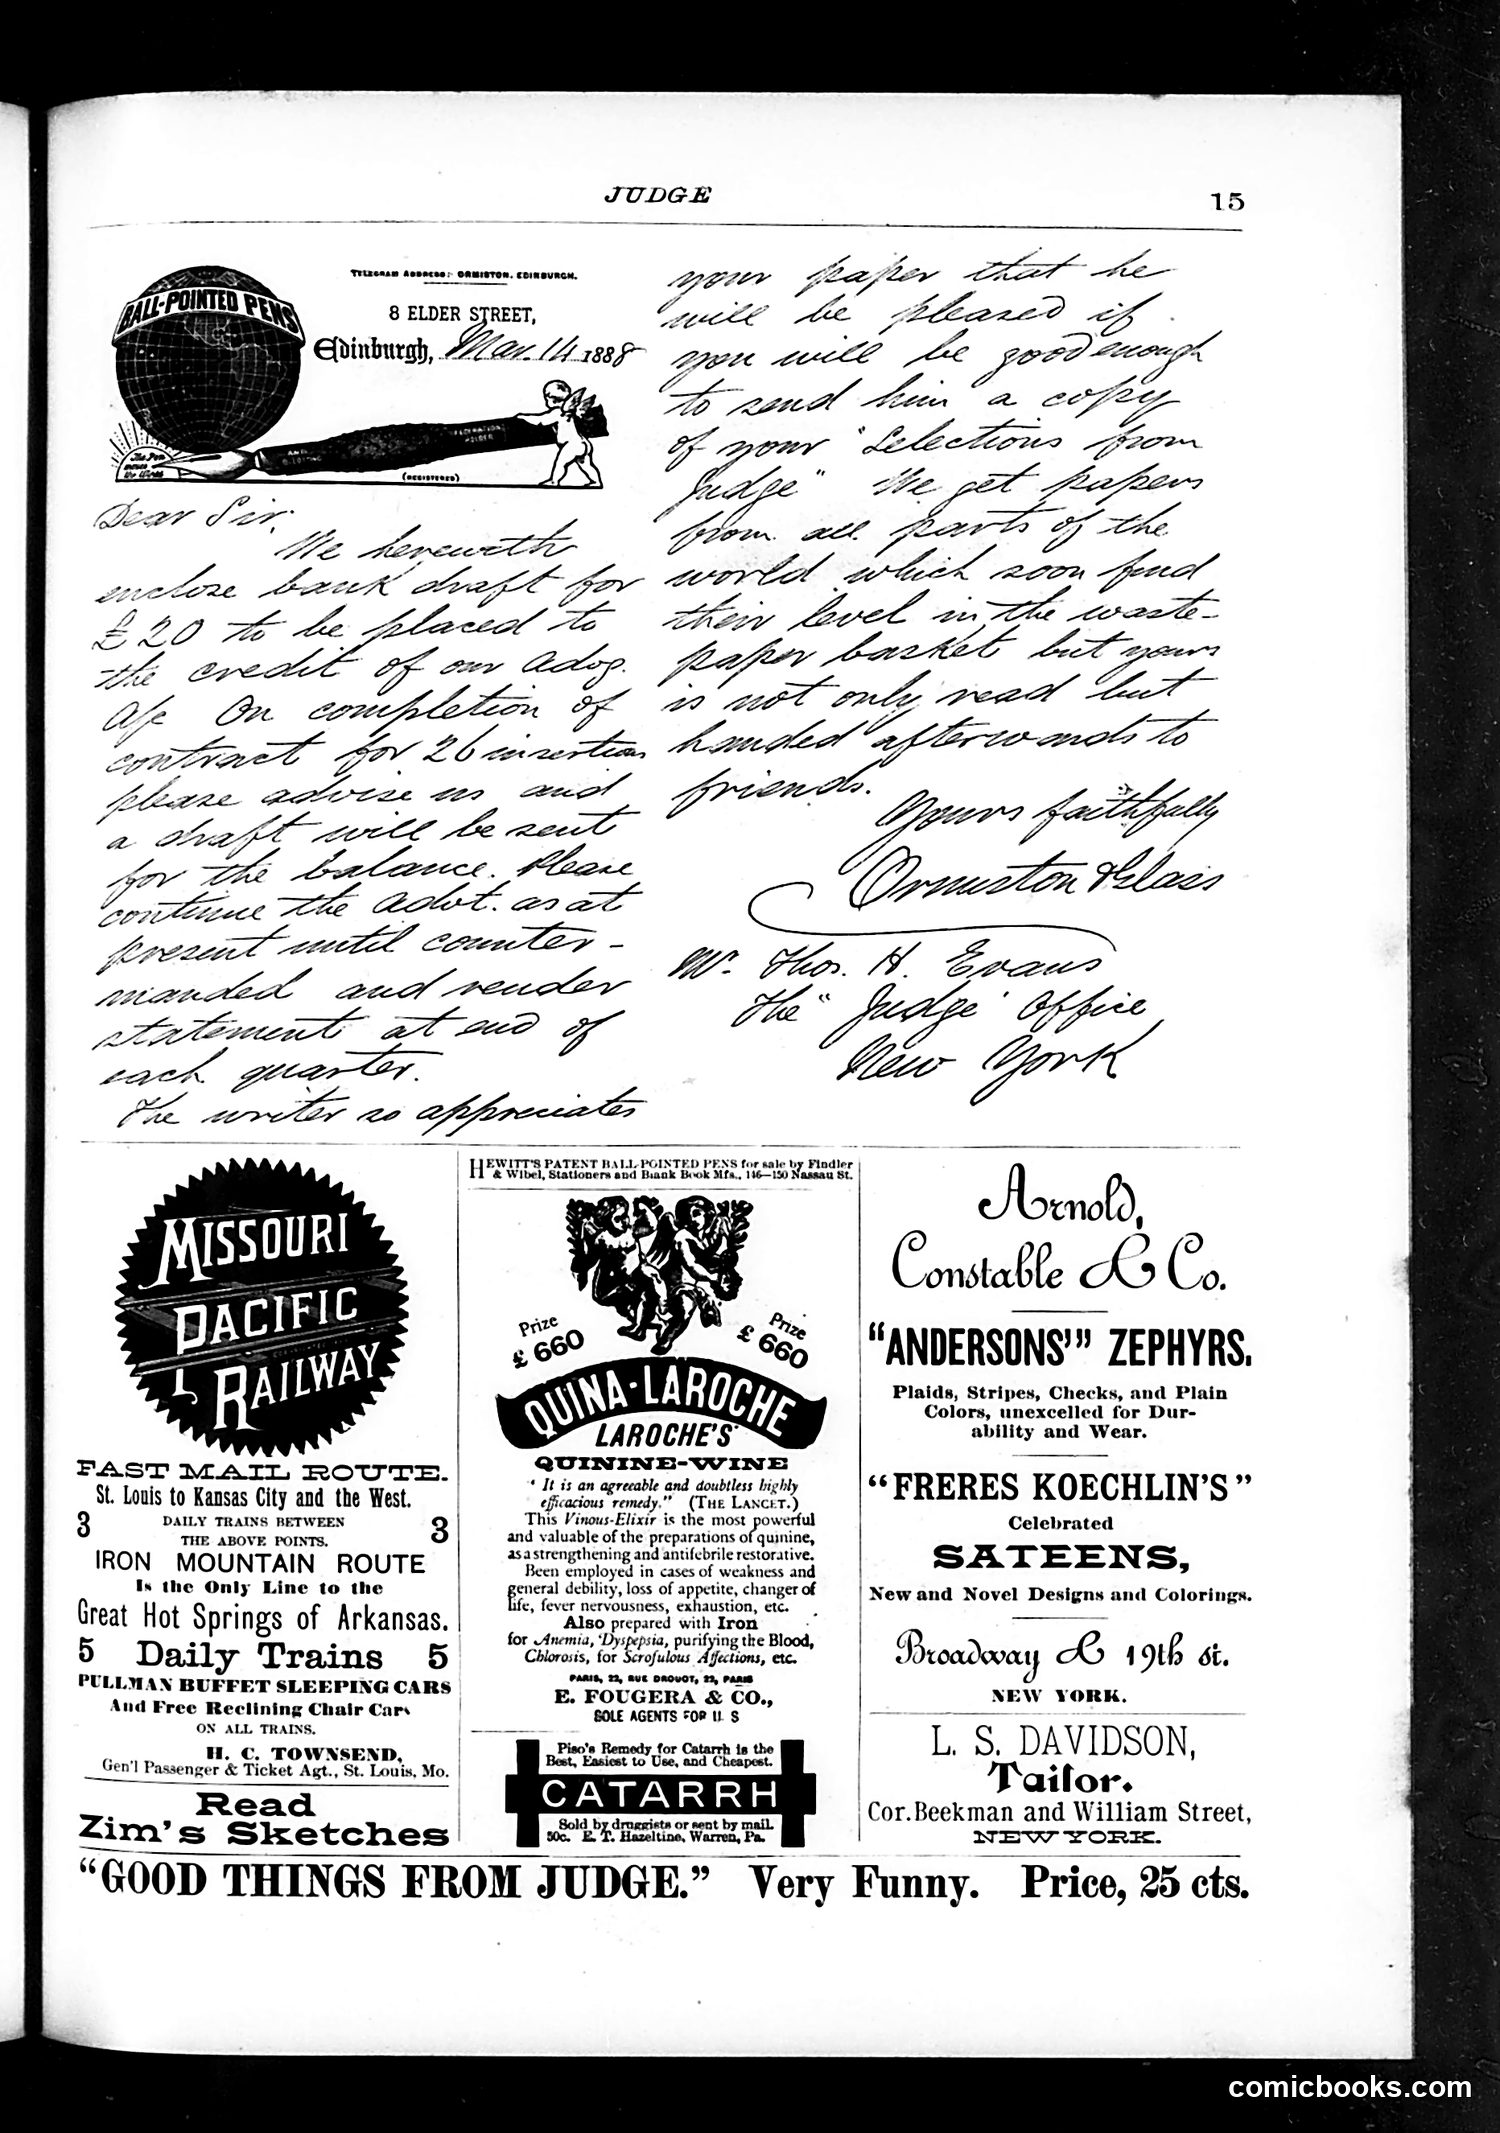 JUDGE
15
BALL-POINTED PENS
TELEGRAM ADDRESS: ORMISTON, EDINBURGH.
8 ELDER STREET,
Edinburgh, Mar. 14 1888
The Pen
FEDERATION
HOLDER
(REGISTERED)
Dear Sir,
We herewith
enclose bank draft for
£20 to be placed to
the credit of our Advg.
A/c On completion of
contract for 26 insertions
please advise us and
a draft will be sent
for the balance. Please
continue the advt. as at
present until counter-
manded and render
statement at end of
each quarter.
The writer so appreciates
your paper that he
will be pleased if
you will be good enough
to send him a copy
of your "Selections from
Judge" We get papers
from all parts of the
world which soon find
their level in the waste-
paper basket but yours
is not only read but
handed afterwards to
friends.
Yours faithfully
Ormiston & Glass
Mr. Thos. H. Evans
The "Judge" Office
New York
MISSOURI
PACIFIC
RAILWAY
FAST MAIL ROUTE.
St. Louis to Kansas City and the West.
3 DAILY TRAINS BETWEEN 3
THE ABOVE POINTS.
IRON MOUNTAIN ROUTE
Is the Only Line to the
Great Hot Springs of Arkansas.
5 Daily Trains 5
PULLMAN BUFFET SLEEPING CARS
And Free Reclining Chair Cars
ON ALL TRAINS.
H. C. TOWNSEND,
Gen'l Passenger & Ticket Agt., St. Louis, Mo.
Read
Zim's Sketches
HEWITT'S PATENT BALL-POINTED PENS for sale by Findler
& Wibel, Stationers and Blank Book Mfs., 146—150 Nassau St.
Prize
£ 660
Prize
£ 660
QUINA-LAROCHE
LAROCHE'S
QUININE-WINE
"It is an agreeable and doubtless highly
efficacious remedy." (THE LANCET.)
This Vinous-Elixir is the most powerful
and valuable of the preparations of quinine,
as a strengthening and antifebrile restorative.
Been employed in cases of weakness and
general debility, loss of appetite, changer of
life, fever nervousness, exhaustion, etc.
Also prepared with Iron
for Anemia, Dyspepsia, purifying the Blood,
Chlorosis, for Scrofulous Affections, etc.
PARIS, 22, RUE DROUOT, 22, PARIS
E. FOUGERA & CO.,
SOLE AGENTS FOR U. S
Piso's Remedy for Catarrh is the
Best, Easiest to Use, and Cheapest.
CATARRH
Sold by druggists or sent by mail.
50c. E. T. Hazeltine, Warren, Pa.
Arnold,
Constable & Co.
"ANDERSONS'" ZEPHYRS.
Plaids, Stripes, Checks, and Plain
Colors, unexcelled for Dur-
ability and Wear.
"FRERES KOECHLIN'S"
Celebrated
SATEENS,
New and Novel Designs and Colorings.
Broadway & 19th St.
NEW YORK.
L. S. DAVIDSON,
Tailor.
Cor. Beekman and William Street,
NEW YORK.
"GOOD THINGS FROM JUDGE." Very Funny. Price, 25 cts.
comicbooks.com